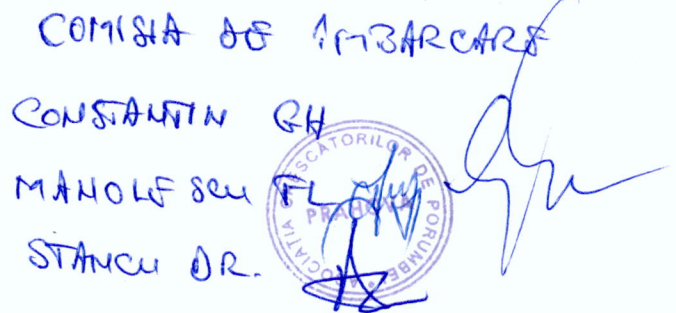 COMISIA DE IMBARCARE
CONSTANTIN GH
MANOLESCU FL
STANCU DR.
ASOCIATIA CRESCATORILOR DE PORUMBEI
PRAHOVA